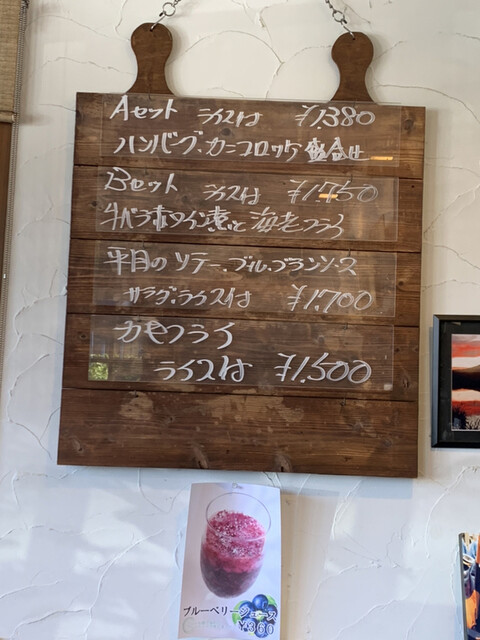 Aセット ライス付 ¥1,380
ハンバーグ、カニコロッケ 盛合せ
Bセット ライス付 ¥1,750
牛バラ赤ワイン煮と海老フライ
平目のソテー、ブル、ブランソース
サラダ、ライス付 ¥1,700
カキフライ
ライス付 ¥1,500
ブルーベリージュース
¥360